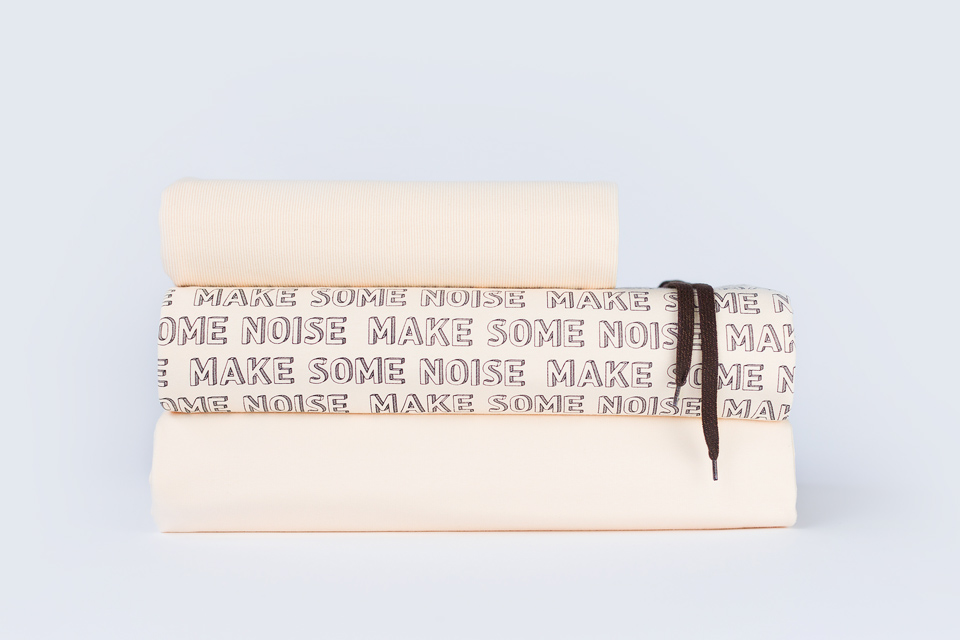 E MAKE SOME NOISE MAKE SOME N
OME NOISE MAKE SOME NOISE MAK
E MAKE SOME NOISE MAKE SOME N
OME NOISE MAKE SOME NOISE MAK